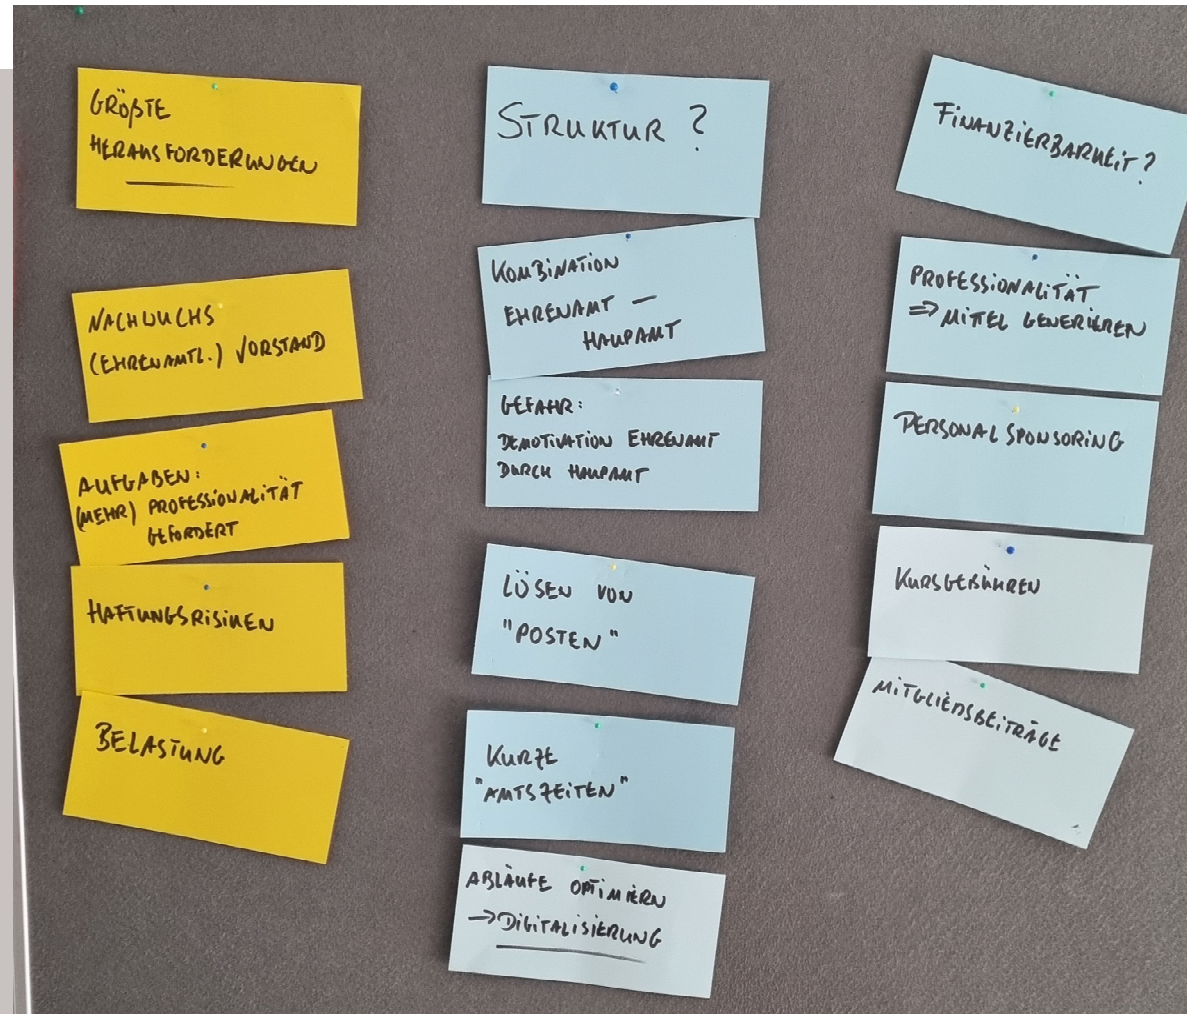 GRÖßTE
HERAUSFORDERUNGEN
NACHWUCHS
(EHRENAMTL.) VORSTAND
AUFGABEN:
(MEHR) PROFESSIONALITÄT
GEFORDERT
HAFTUNGSRISIKEN
BELASTUNG
STRUKTUR ?
KOMBINATION
EHRENAMT –
HAUPAMT
GEFAHR:
DEMOTIVATION EHRENAMT
DURCH HAUPAMT
LÖSEN VON
"POSTEN"
KURZE
"AMTSZEITEN"
ABLÄUFE OPTIMIERN
→ DIGITALISIERUNG
FINANZIERBARKEIT ?
PROFESSIONALITÄT
⇒ MITTEL GENERIEREN
PERSONALSPONSORING
KURSGEBÜHREN
MITGLIEDSBEITRÄGE